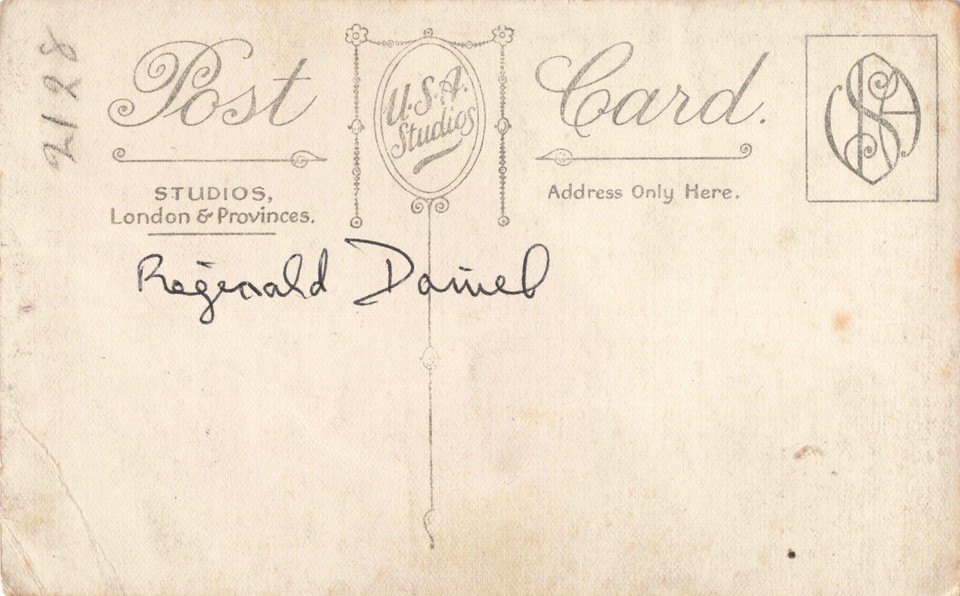 2128
Post Card.
U.S.A.
Studios
STUDIOS,
London & Provinces.
Address Only Here.
USA
Reginald Daniel